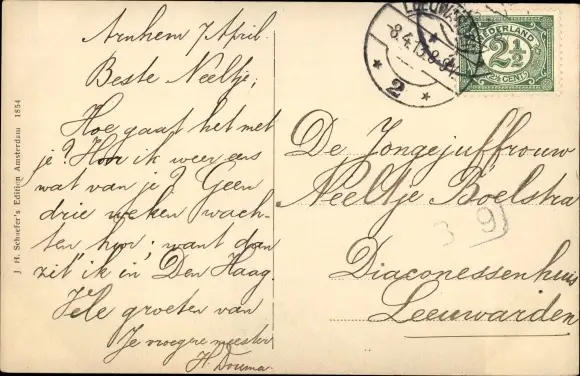 Arnhem 7 April.
Beste Neeltje,
Hoe gaat het met
je? Hoor ik weer eens
wat van je? Geen
drie weken wach-
ten hoor; want dan
zit ik in Den Haag.
Vele groeten van
Je vroegere meester
H. Douma.
J. H. Schaefer's Edition Amsterdam 1854
LEEUWARDEN
8.4.13.8-9V.
2
NEDERLAND
2½
2½ CENT
De Jongejuffrouw
Neeltje Boelstra
39
Diaconessenhuis
Leeuwarden